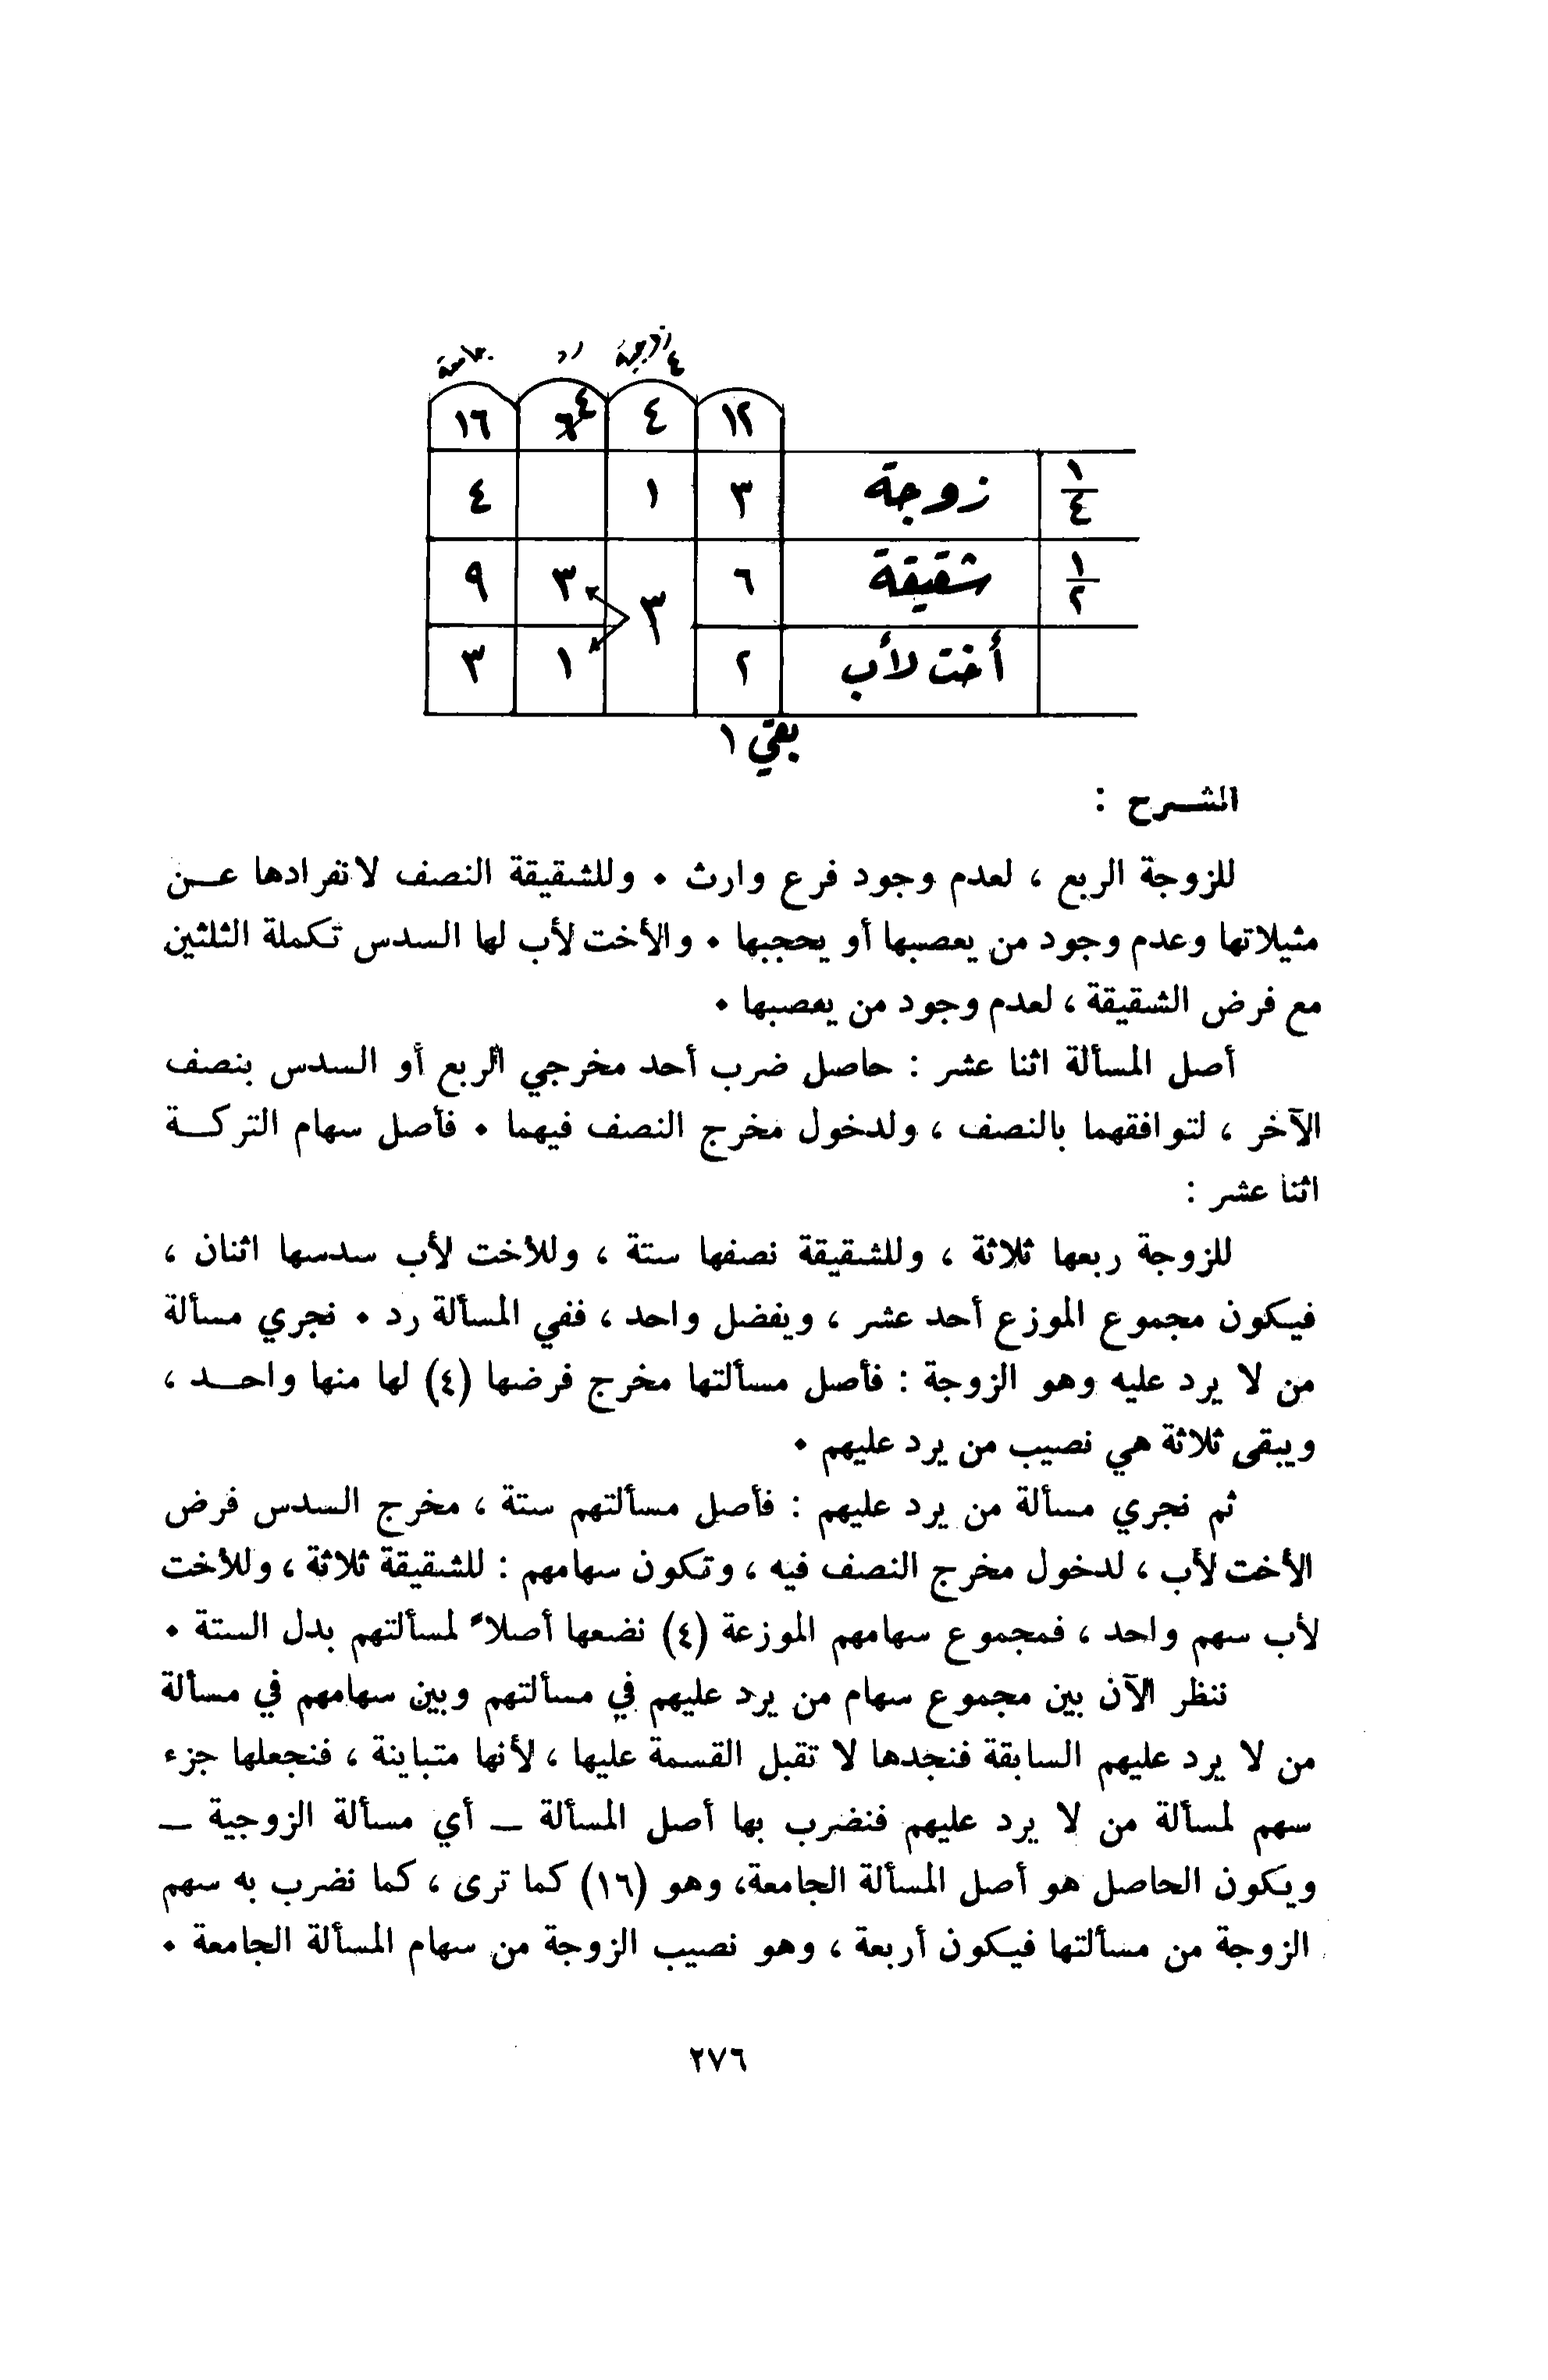 زوجية ٤ رد جامعة
١٢ ٤ ٦ ٤ ١٦
١/٤ زوجة ٣ ١ ٤
١/٢ شقيقة ٦ ٣ ٣ ٩
أخت لأب ٢ ١ ٣
بقي ١
الشرح :
للزوجة الربع ، لعدم وجود فرع وارث . وللشقيقة النصف لانفرادها عن
مثيلاتها وعدم وجود من يعصبها أو يحجبها . والأخت لأب لها السدس تكملة الثلثين
مع فرض الشقيقة ، لعدم وجود من يعصبها .
أصل المسألة اثنا عشر : حاصل ضرب أحد مخرجي الربع أو السدس بنصف
الآخر ، لتوافقهما بالنصف ، ولدخول مخرج النصف فيهما . فأصل سهام التركة
اثنا عشر :
للزوجة ربعها ثلاثة ، وللشقيقة نصفها ستة ، وللأخت لأب سدسها اثنان ،
فيكون مجموع الموزع أحد عشر ، ويفضل واحد ، ففي المسألة رد . نجري مسألة
من لا يرد عليه وهو الزوجة : فأصل مسألتها مخرج فرضها (٤) لها منها واحد ،
ويبقى ثلاثة هي نصيب من يرد عليهم .
ثم نجري مسألة من يرد عليهم : فأصل مسألتهم ستة ، مخرج السدس فرض
الأخت لأب ، لدخول مخرج النصف فيه ، وتكون سهامهم : للشقيقة ثلاثة ، وللأخت
لأب سهم واحد ، فمجموع سهامهم الموزعة (٤) نضعها أصلاً لمسألتهم بدل الستة .
ننظر الآن بين مجموع سهام من يرد عليهم في مسألتهم وبين سهامهم في مسألة
من لا يرد عليهم السابقة فنجدها لا تقبل القسمة عليها ، لأنها متباينة ، فنجعلها جزء
سهم لمسألة من لا يرد عليهم فنضرب بها أصل المسألة – أي مسألة الزوجية –
ويكون الحاصل هو أصل المسألة الجامعة، وهو (١٦) كما ترى ، كما نضرب به سهم
الزوجة من مسألتها فيكون أربعة ، وهو نصيب الزوجة من سهام المسألة الجامعة .
٢٧٦